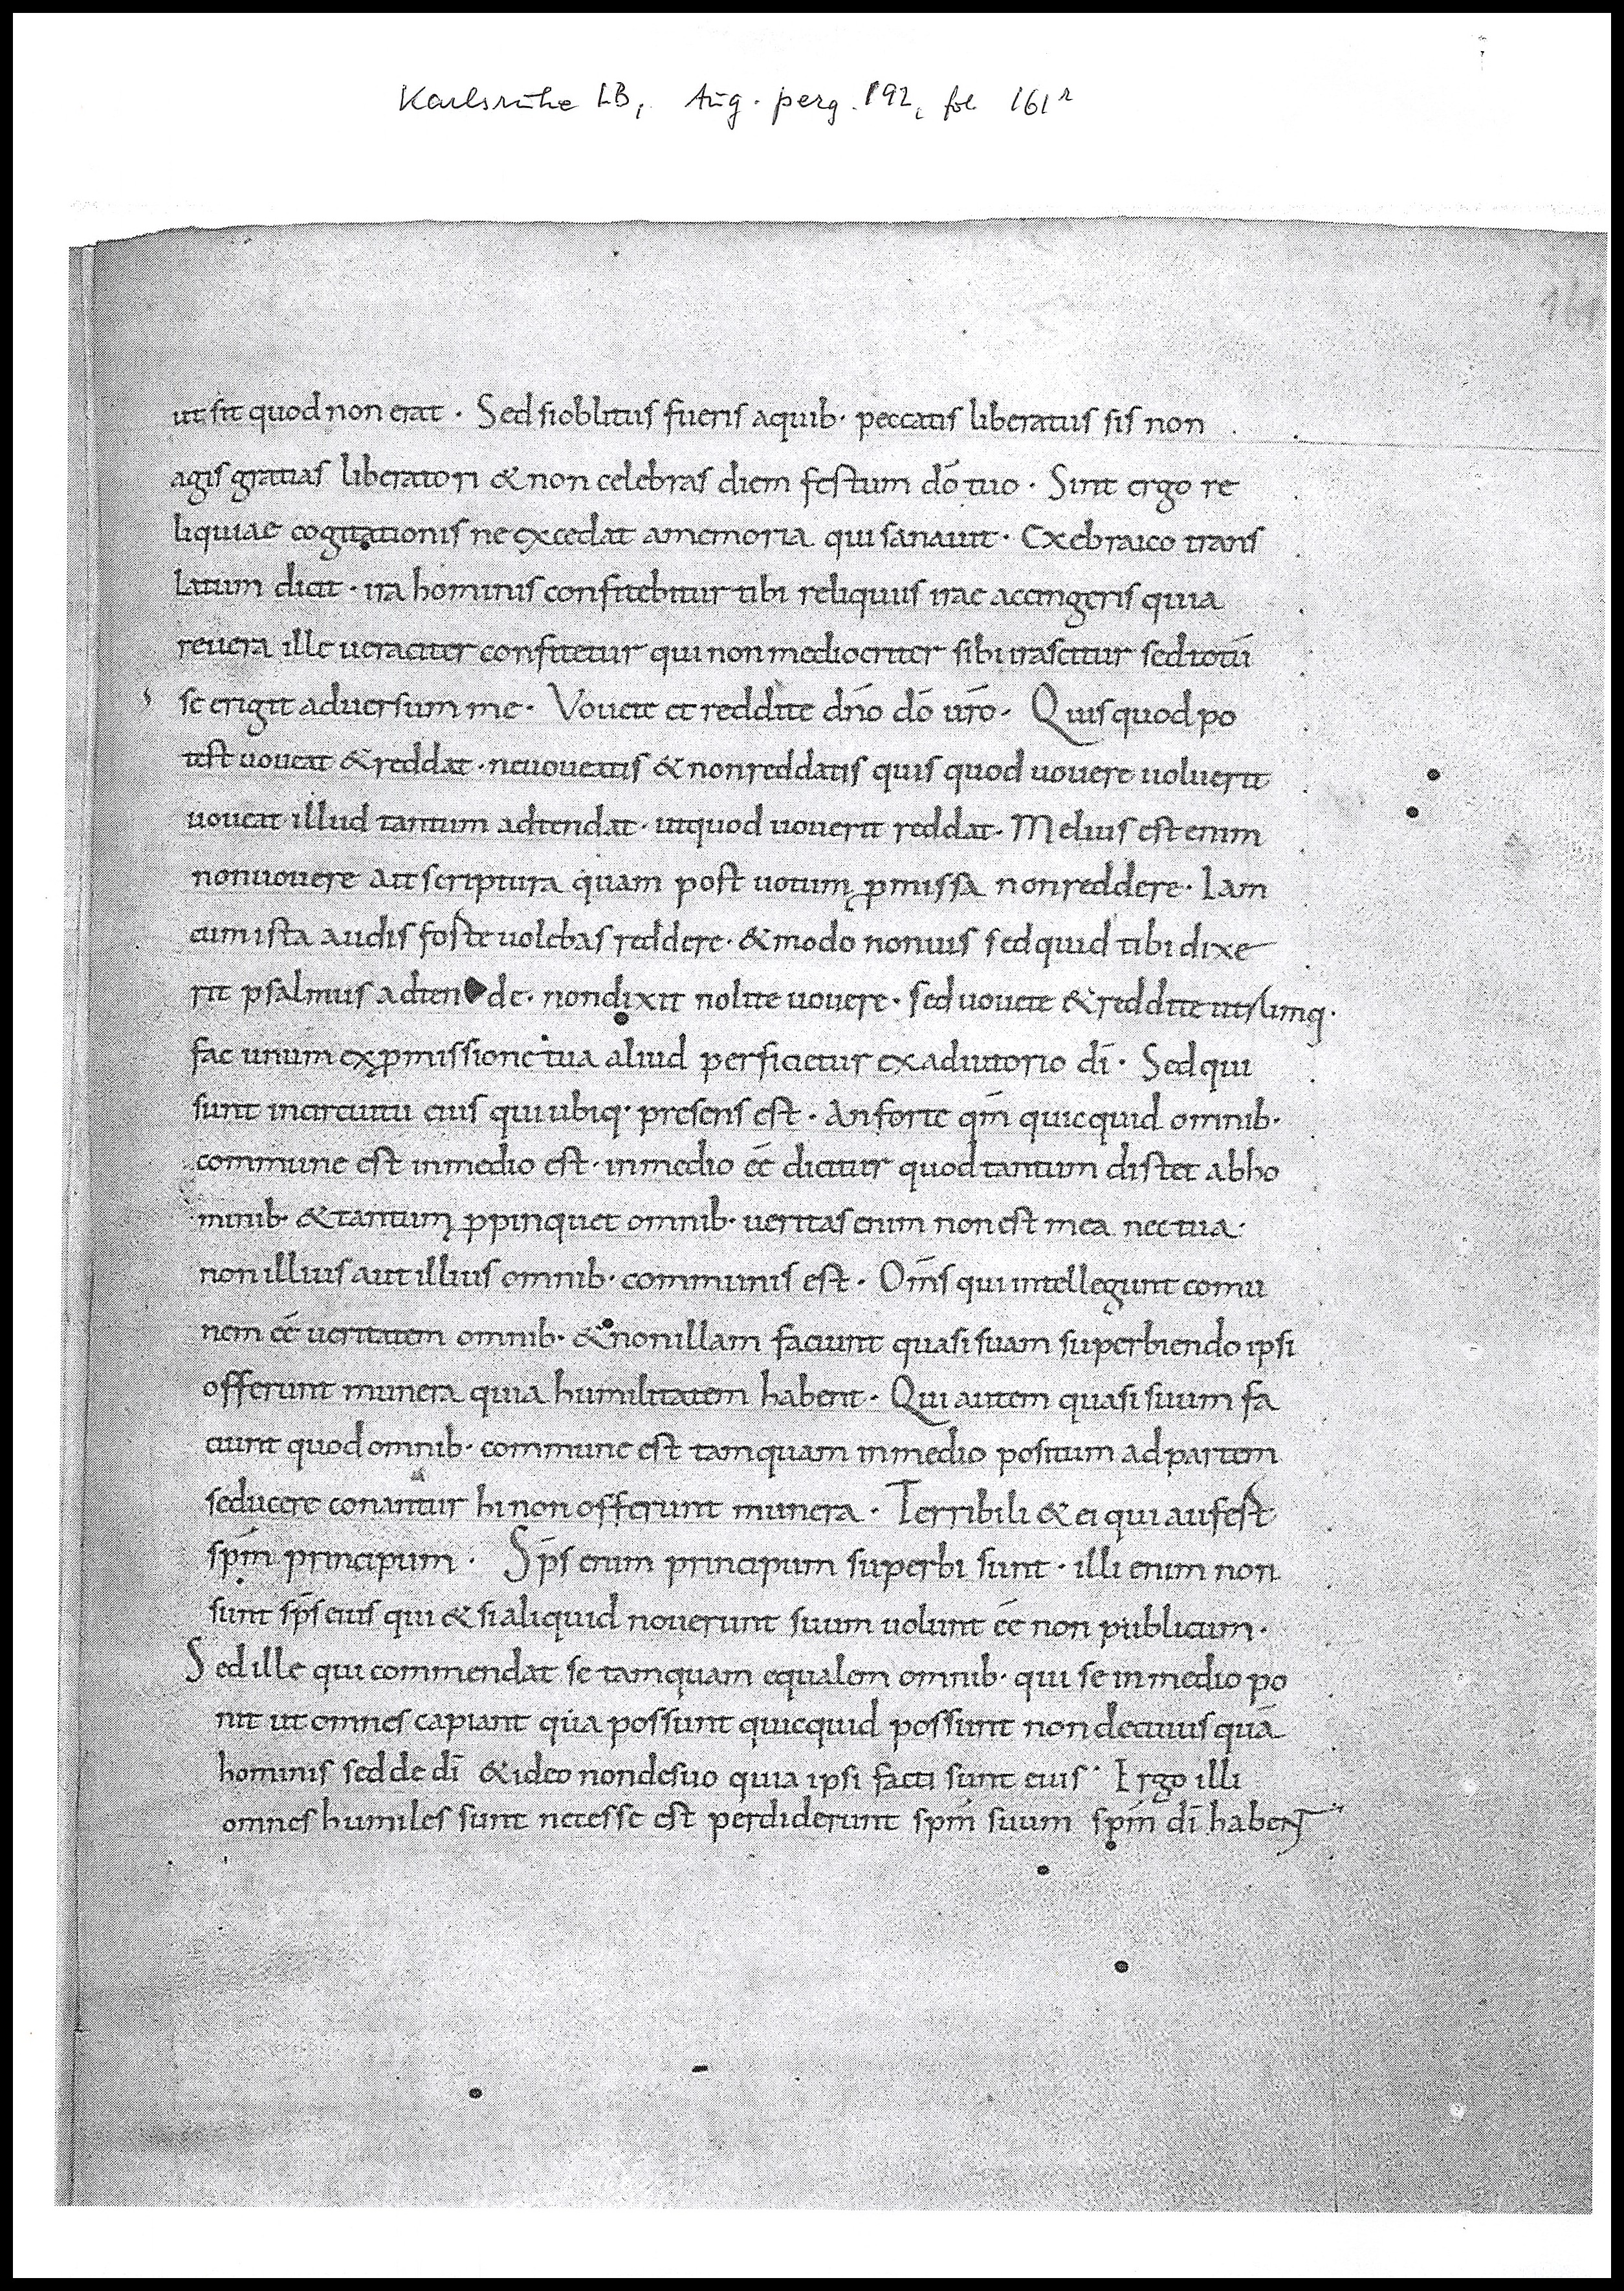 Karlsruhe LB, Aug. perg. 192, fol 161r
161
ut sit quod non erat · Sed si oblitus fueris aquib· peccatis liberatus sis non
agis gratias liberatori & non celebras diem festum dō tuo · Sint ergo re
liquiae cogitationis ne excedat amemoria qui sanauit · Exebraico trans
latum dicit · ira hominis confitebitur tibi reliquiis irae accingeris quia
reuera ille ueraciter confitetur qui non mediocriter sibi irascitur sed totū
se erigit aduersum me · Vouete et reddite dn̄o dō ur̄o · Quis quod po
test uoueat & reddat · ne uoueatis & non reddatis quis quod uouere uoluerit
uoueat illud tantum adtendat · ut quod uouerit reddat · Melius est enim
non uouere ait scriptura quam post uotum ꝓmissa non reddere · Iam
cum ista audis forte uolebas reddere · & modo non uis sed quid tibi dixe
rit psalmus adten de · non dixit nolite uouere · sed uouete & reddite utrumq·
fac unum ex ꝓmissione tua aliud perficietur ex adiutorio dī · Sed qui
sunt incircuitu eius qui ubiq· presens est · An forte qm̄ quicquid omnib·
commune est inmedio est · inmedio eē dicitur quod tantum distet abho
minib· & tantum ꝓpinquet omnib· ueritas enim non est mea nec tua ·
non illius aut illius omnib· communis est · Om̄s qui intellegunt comu
nem eē ueritatem omnib· & non illam faciunt quasi suam superbiendo ipsi
offerunt munera quia humilitatem habent · Qui autem quasi suum fa
ciunt quod omnib· commune est tamquam inmedio positum ad partem
seducere conantur hi non offerunt munera · Terribili & ei qui aufert
spm̄ principum · Sp̄s enim principum superbi sunt · illi enim non
sunt sp̄s eius qui & si aliquid nouerunt suum uolunt eē non publicum ·
Sed ille qui commendat se tamquam equalem omnib· qui se inmedio po
nit ut omnes capiant quia possunt quicquid possunt non decuius quā
hominis sed de dī & ideo non desuo quia ipsi facti sunt eius · Ergo illi
omnes humiles sunt necesse est perdiderunt spm̄ suum spm̄ dī habent